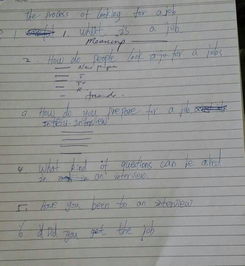 the process of looking for a job
1, what is a job
Meaning
2 How do people look for a jobs
News paper
T
friends
3 How do you prepare for a job
interview
4 What kind of questions can be asked
in an interview
5 Have you been to an interview
6 did you get the job